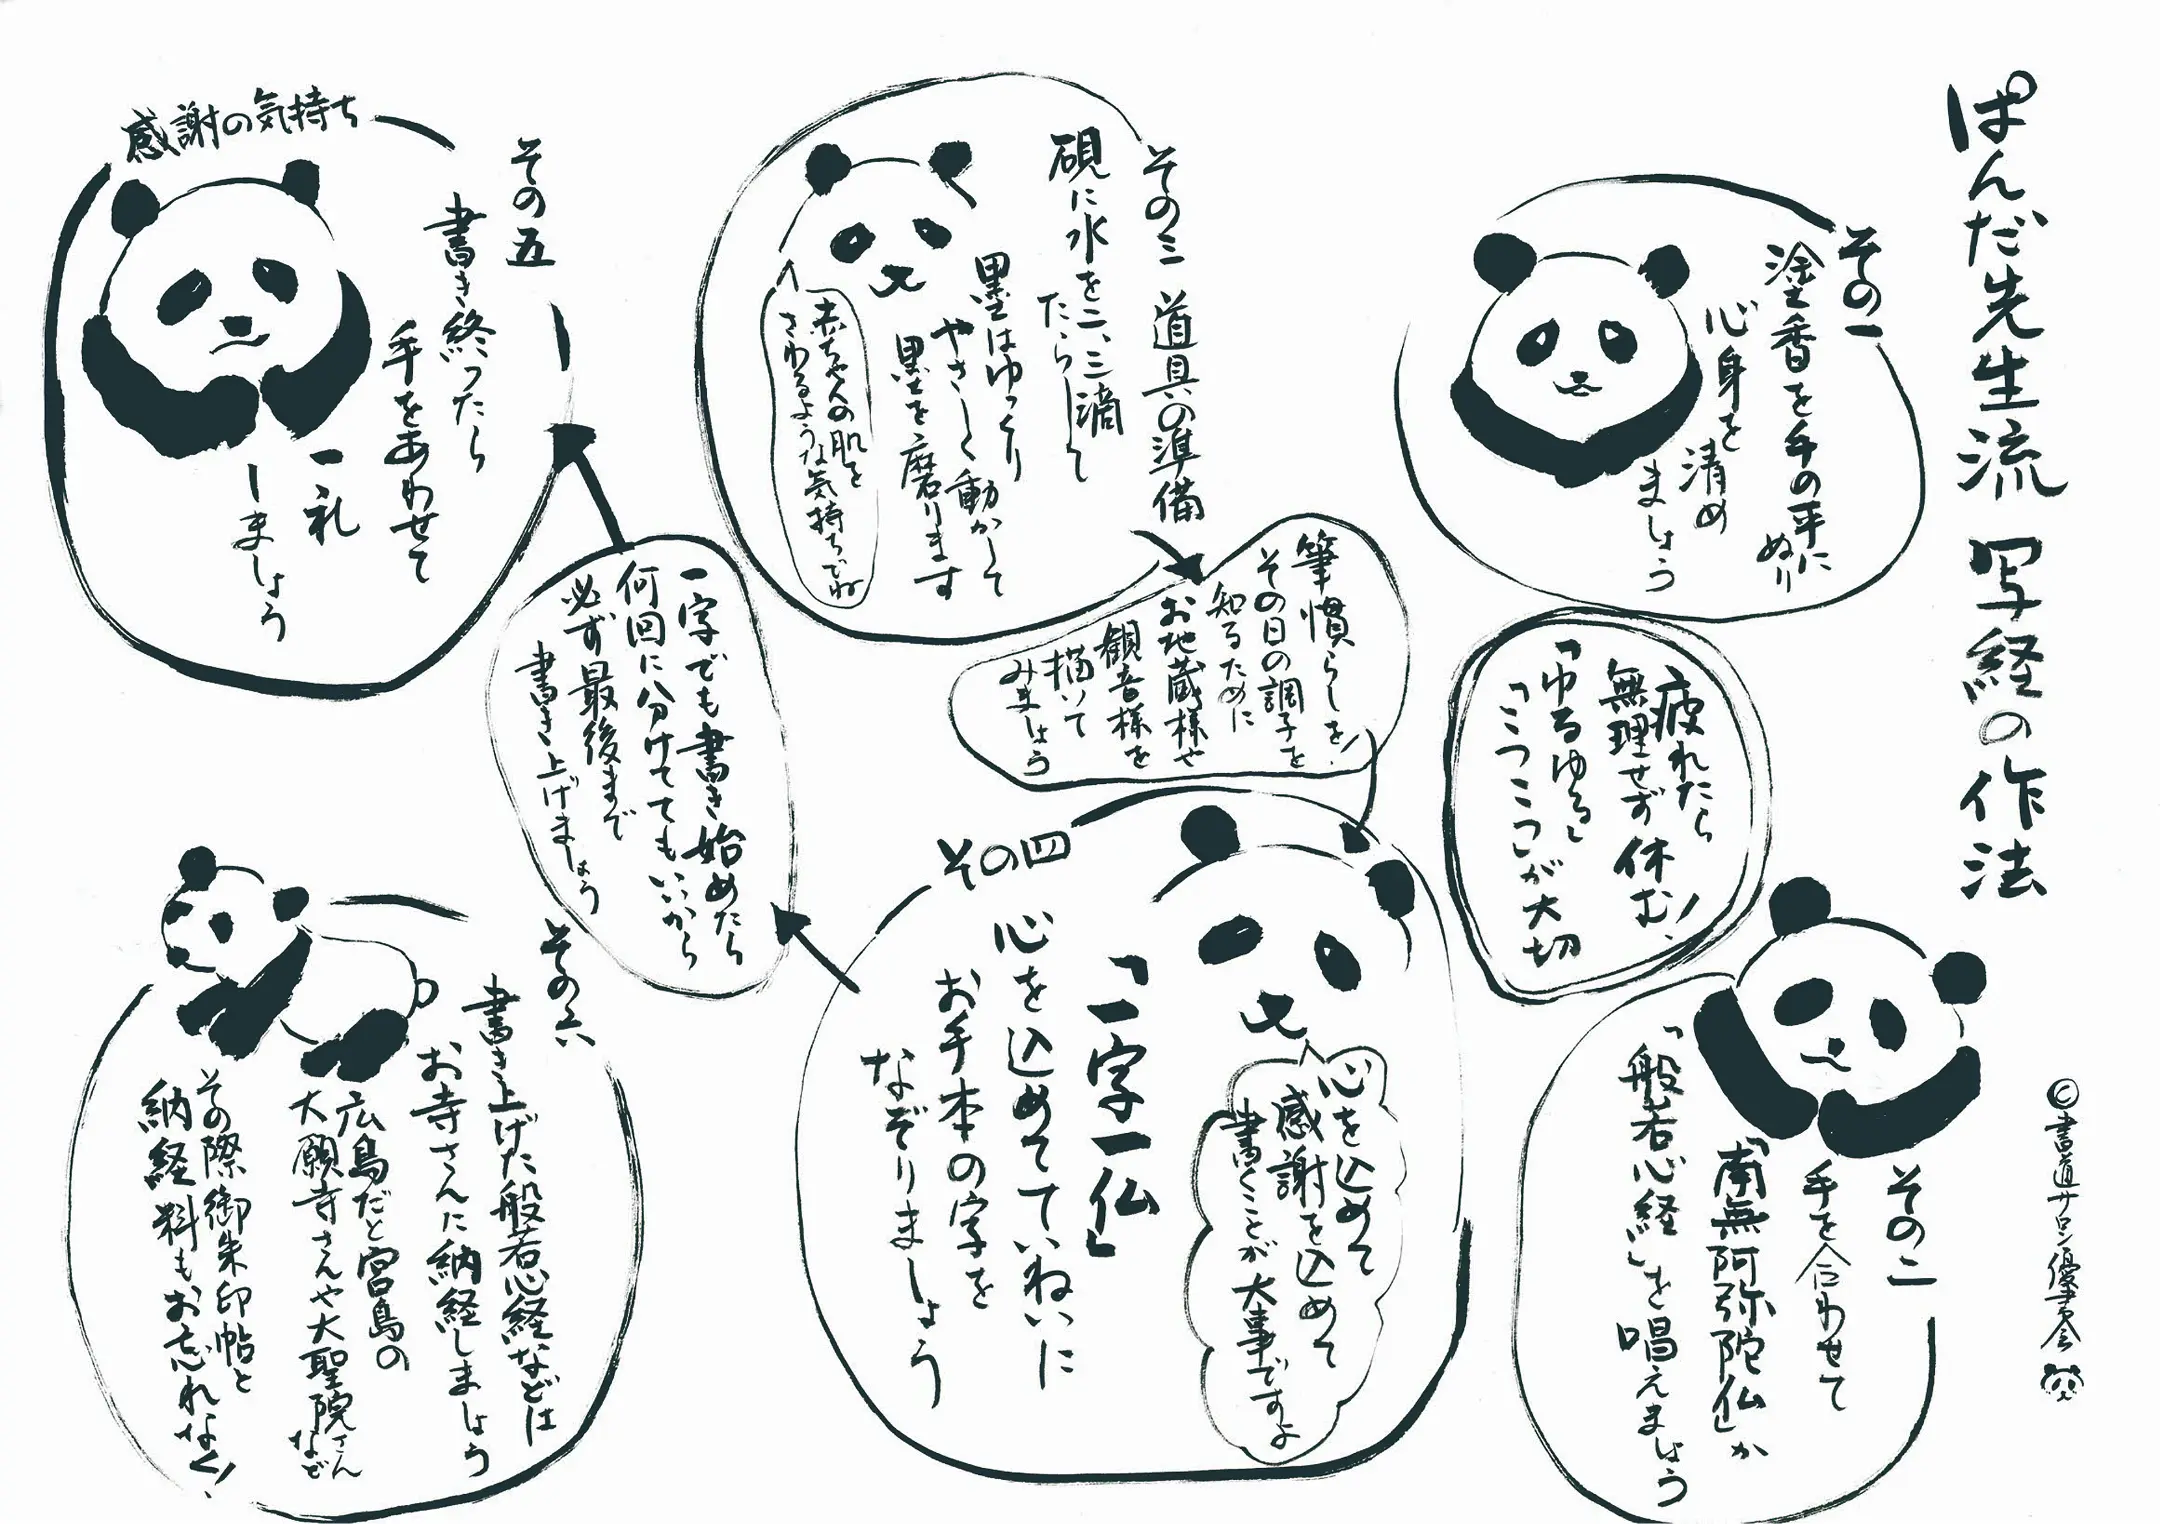 ぱんだ先生流 写経の作法
©書道サロン優書会
その一
塗香を手の平に
ぬり
心身を
清め
ましょう
その二
手を合わせて
「南無阿弥陀仏」か
「般若心経」を
唱えましょう
疲れたら
無理せず休む!
「ゆるゆる」
「こつこつ」が大切
その三 道具の準備
硯に水を二、三滴
たらして
墨はゆっくり
やさしく動かして
墨を磨ります
赤ちゃんの肌を
さわるような気持ちでね
筆慣らしを!
その日の調子を
知るために
お地蔵様や
観音様を
描いて
みましょう
その四
「一字一仏」
心を込めてていねいに
お手本の字を
なぞりましょう
心を込めて
感謝を込めて
書くことが大事ですよ
一字でも書き始めたら
何回に分けてもいいから
必ず最後まで
書き上げましょう
その五
感謝の気持ち
書き終ったら
手をあわせて
一礼
しましょう
その六
書き上げた般若心経などは
お寺さんに納経しましょう
広島だと宮島の
大願寺さんや大聖院さん
など
その際御朱印帖と
納経料もお忘れなく!